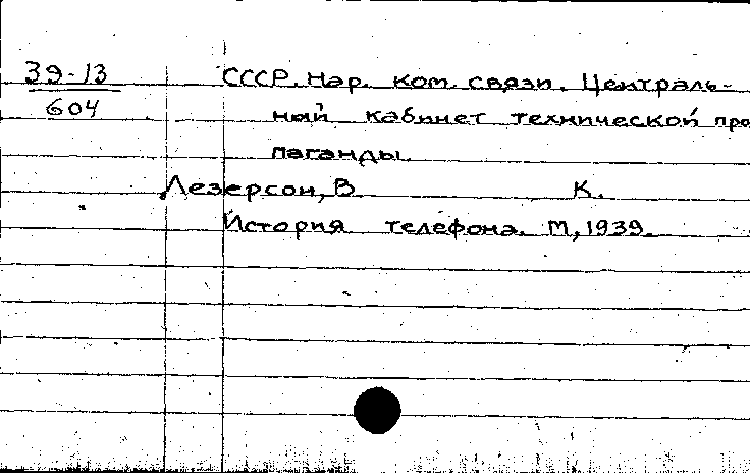 39-13
604
СССР. Нар. ком. связи. Централь-
ный кабинет технической про
паганды.
Лезерсон, В. К.
История телефона. М, 1939.